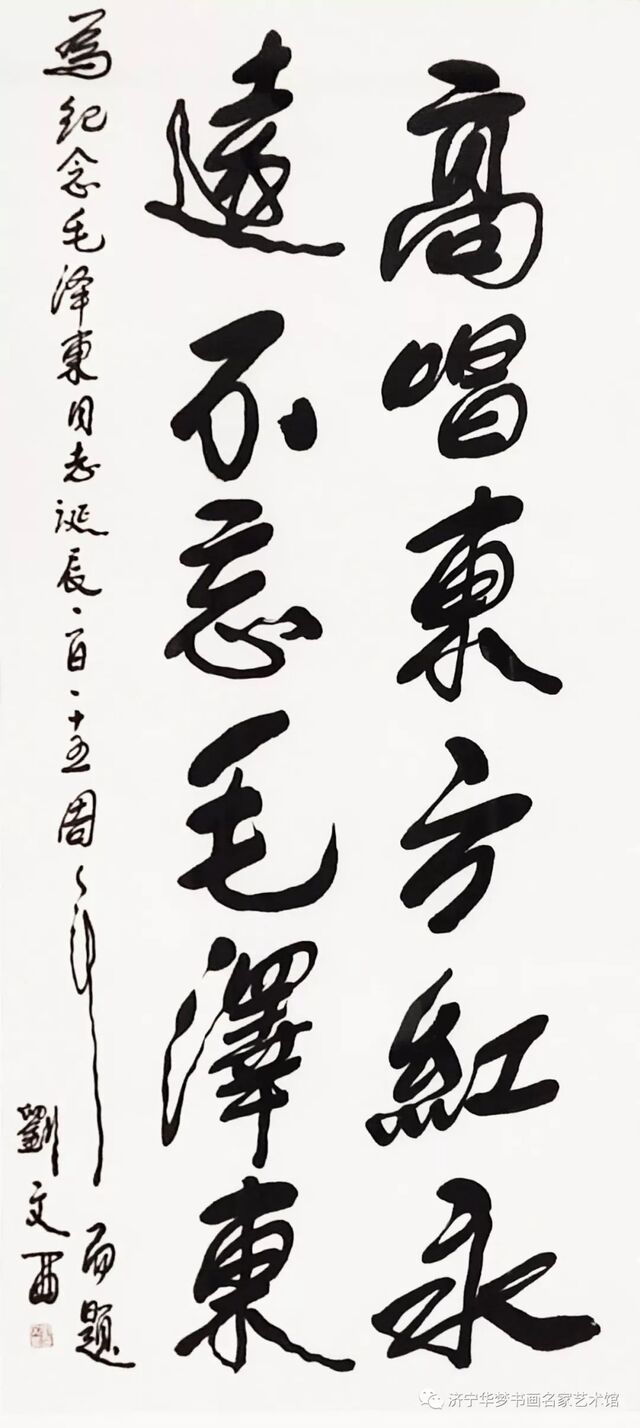 高唱東方紅永
遠不忘毛澤東
爲紀念毛泽東同志诞辰一百一十五周年而題
劉文西
济宁华梦书画名家艺术馆